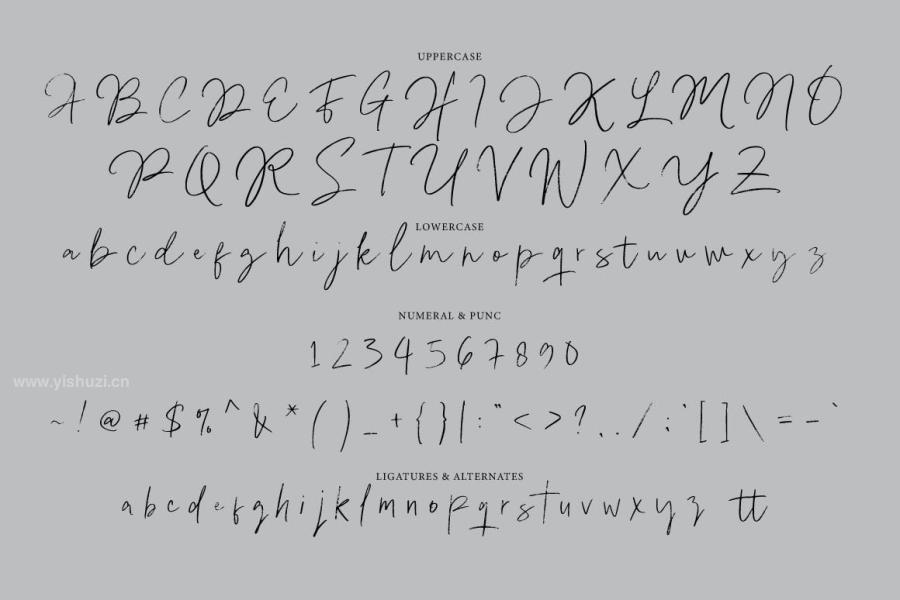 UPPERCASE
A B C D E F G H I J K L M N O
P Q R S T U V W X Y Z
LOWERCASE
a b c d e f g h i j k l m n o p q r s t u v w x y z
NUMERAL & PUNC
1 2 3 4 5 6 7 8 9 0
www.yishuzi.cn
~ ! @ # $ % ^ & * ( ) _ + { } | : " < > ? . . / ; ' [ ] \ = - `
LIGATURES & ALTERNATES
a b c d e f g h i j k l m n o p q r s t u v w x y z tt